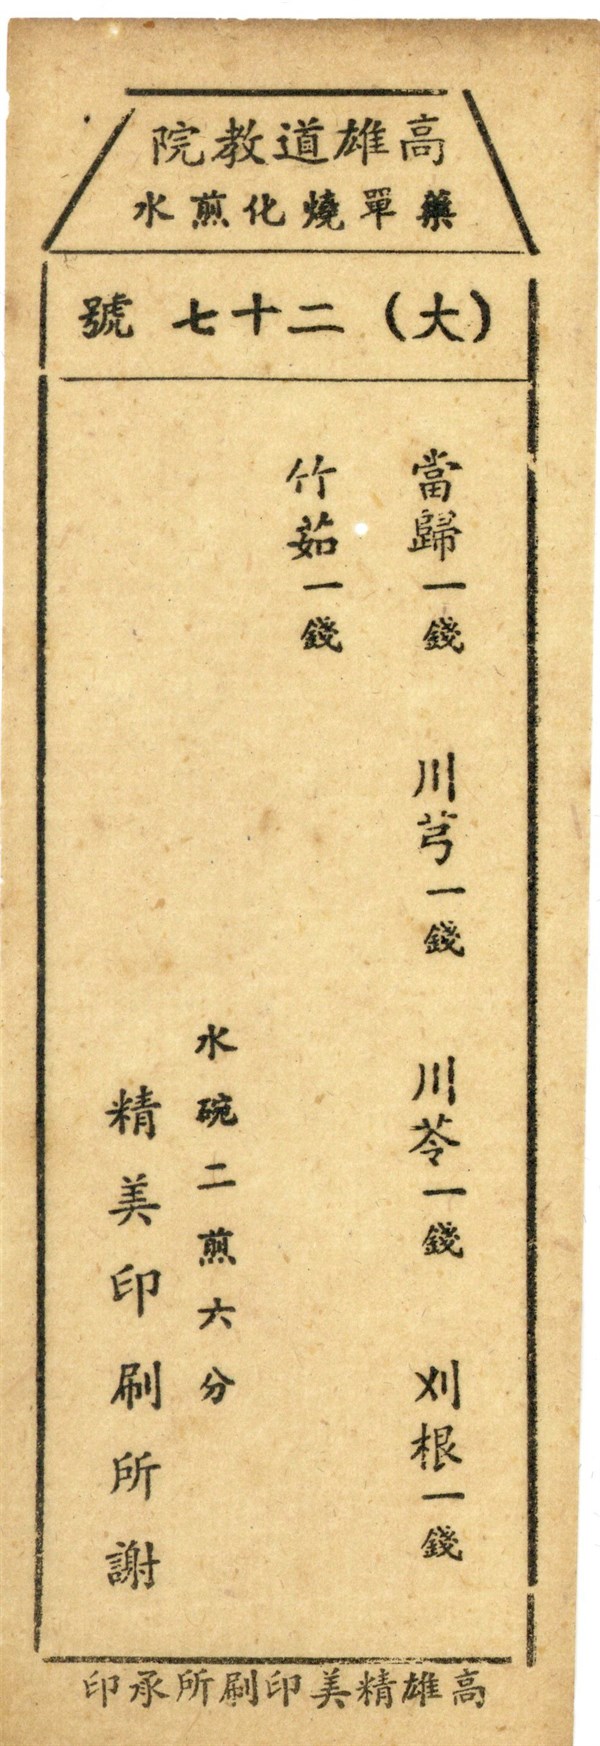 高雄道教院
藥單燒化煎水
(大)二十七號
當歸一錢 川芎一錢 川芩一錢 刈根一錢
竹茹一錢
水碗二煎六分
精美印刷所謝
高雄精美印刷所承印